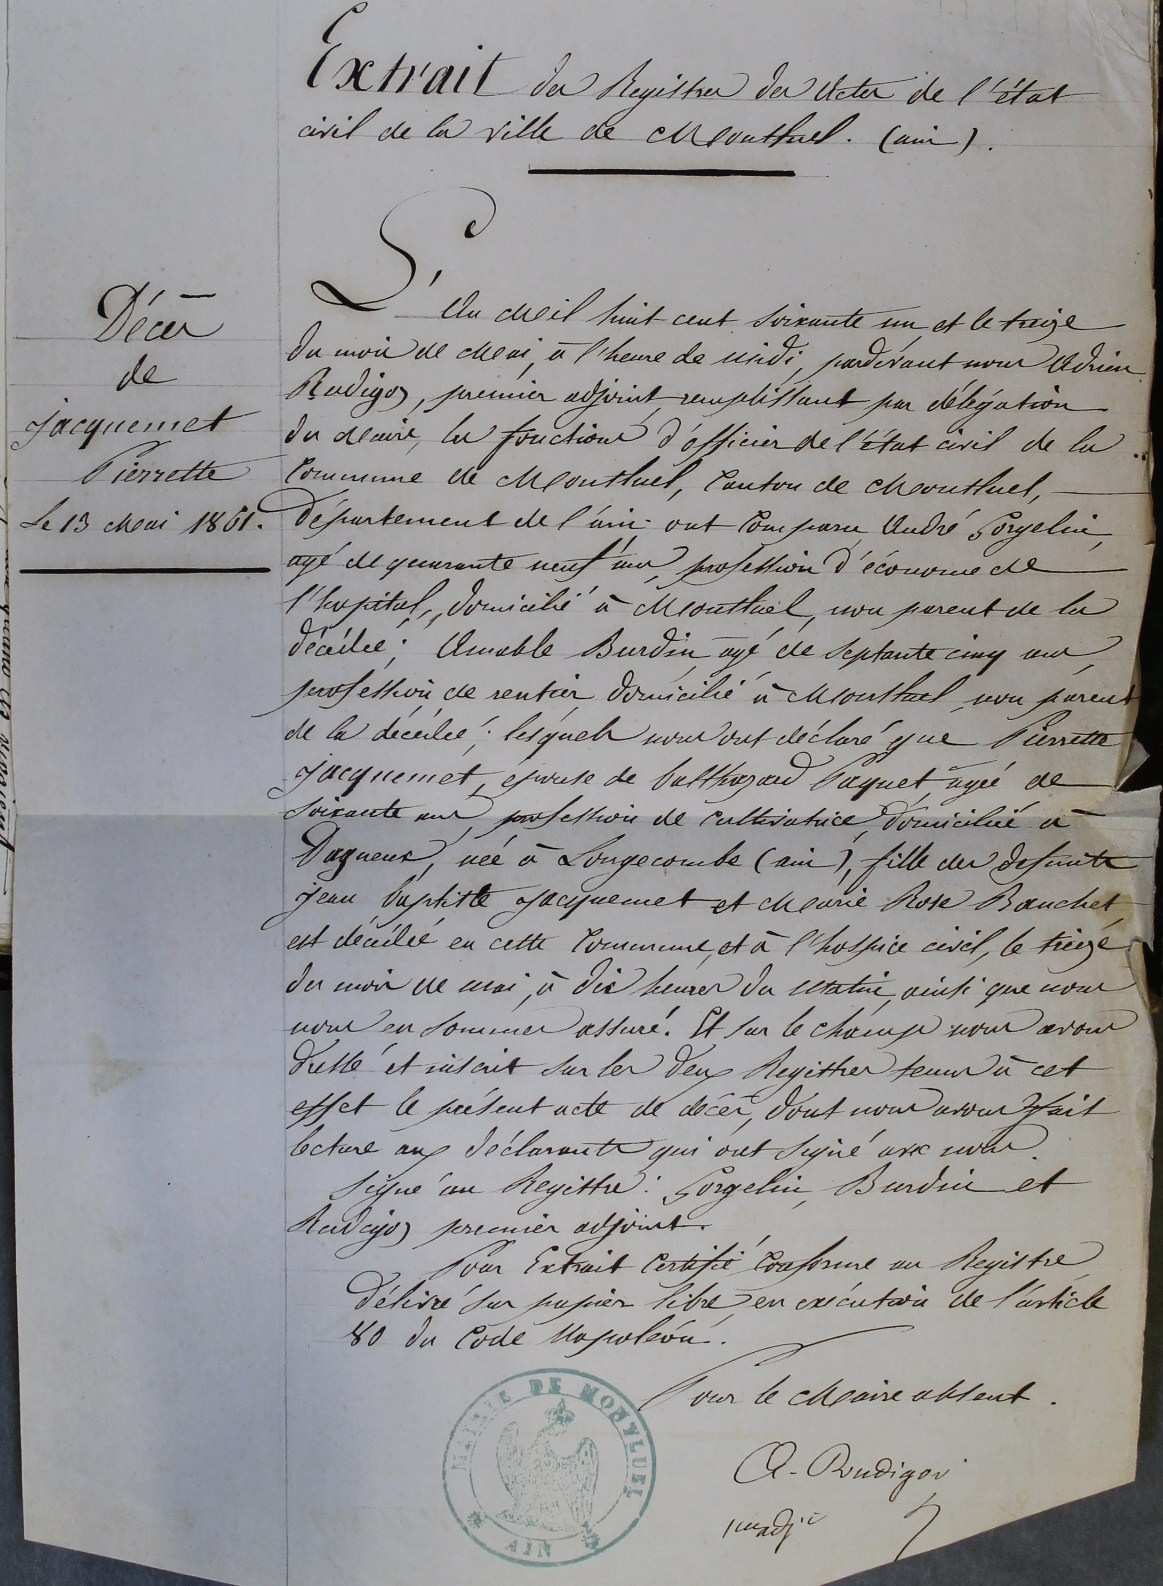 Extrait des Registres des Actes de l'état
civil de la ville de Montluel. (ain).
Décès
de
Jacquemet
Pierrette
Le 13 Mai 1861.
L'An Mil huit cent soixante un et le treize
du mois de Mai, à l'heure de Midi, pardevant nous Adrien
Rudigoz, premier adjoint remplissant par délégation
du Maire, les fonctions d'officier de l'état civil de la
Commune de Montluel, Canton de Montluel,
Département de l'ain; ont Comparu André Gorgelin,
agé de quarante neuf ans, profession d'économe de
l'hopital, domicilié à Montluel, non parent de la
décédée; Amable Burdin agé de septante cinq ans,
profession de rentier, domicilié à Montluel, non parent
de la décédée; lesquels nous ont déclaré que Pierrette
Jacquemet, epouse de balthazard Paquet, agée de
soixante ans, profession de cultivatrice, domiciliée à
Dagneux, née à Longecombe (ain), fille des defunts
Jean baptiste Jacquemet et Marie Rose Bauchet,
est décédée en cette Commune, et à l'hospice civil, le treize
du mois de mai, à dix heures du Matin, ainsi que nous
nous en sommes assuré. Et sur le champ nous avons
dressé et inscrit sur les deux Registres tenus à cet
effet le présent acte de décès, dont nous avons fait
lecture aux déclarants qui ont signé avec nous.
Signé au Registre: Gorgelin, Burdin et
Rudigoz premier adjoint.
Pour Extrait Certifié Conforme au Registre,
Délivré sur papier libre en exécution de l'article
80 du Code Napoléon.
Pour le Maire absent.
A. Rudigoz
1er adjt
MAIRIE DE MONTLUEL
AIN